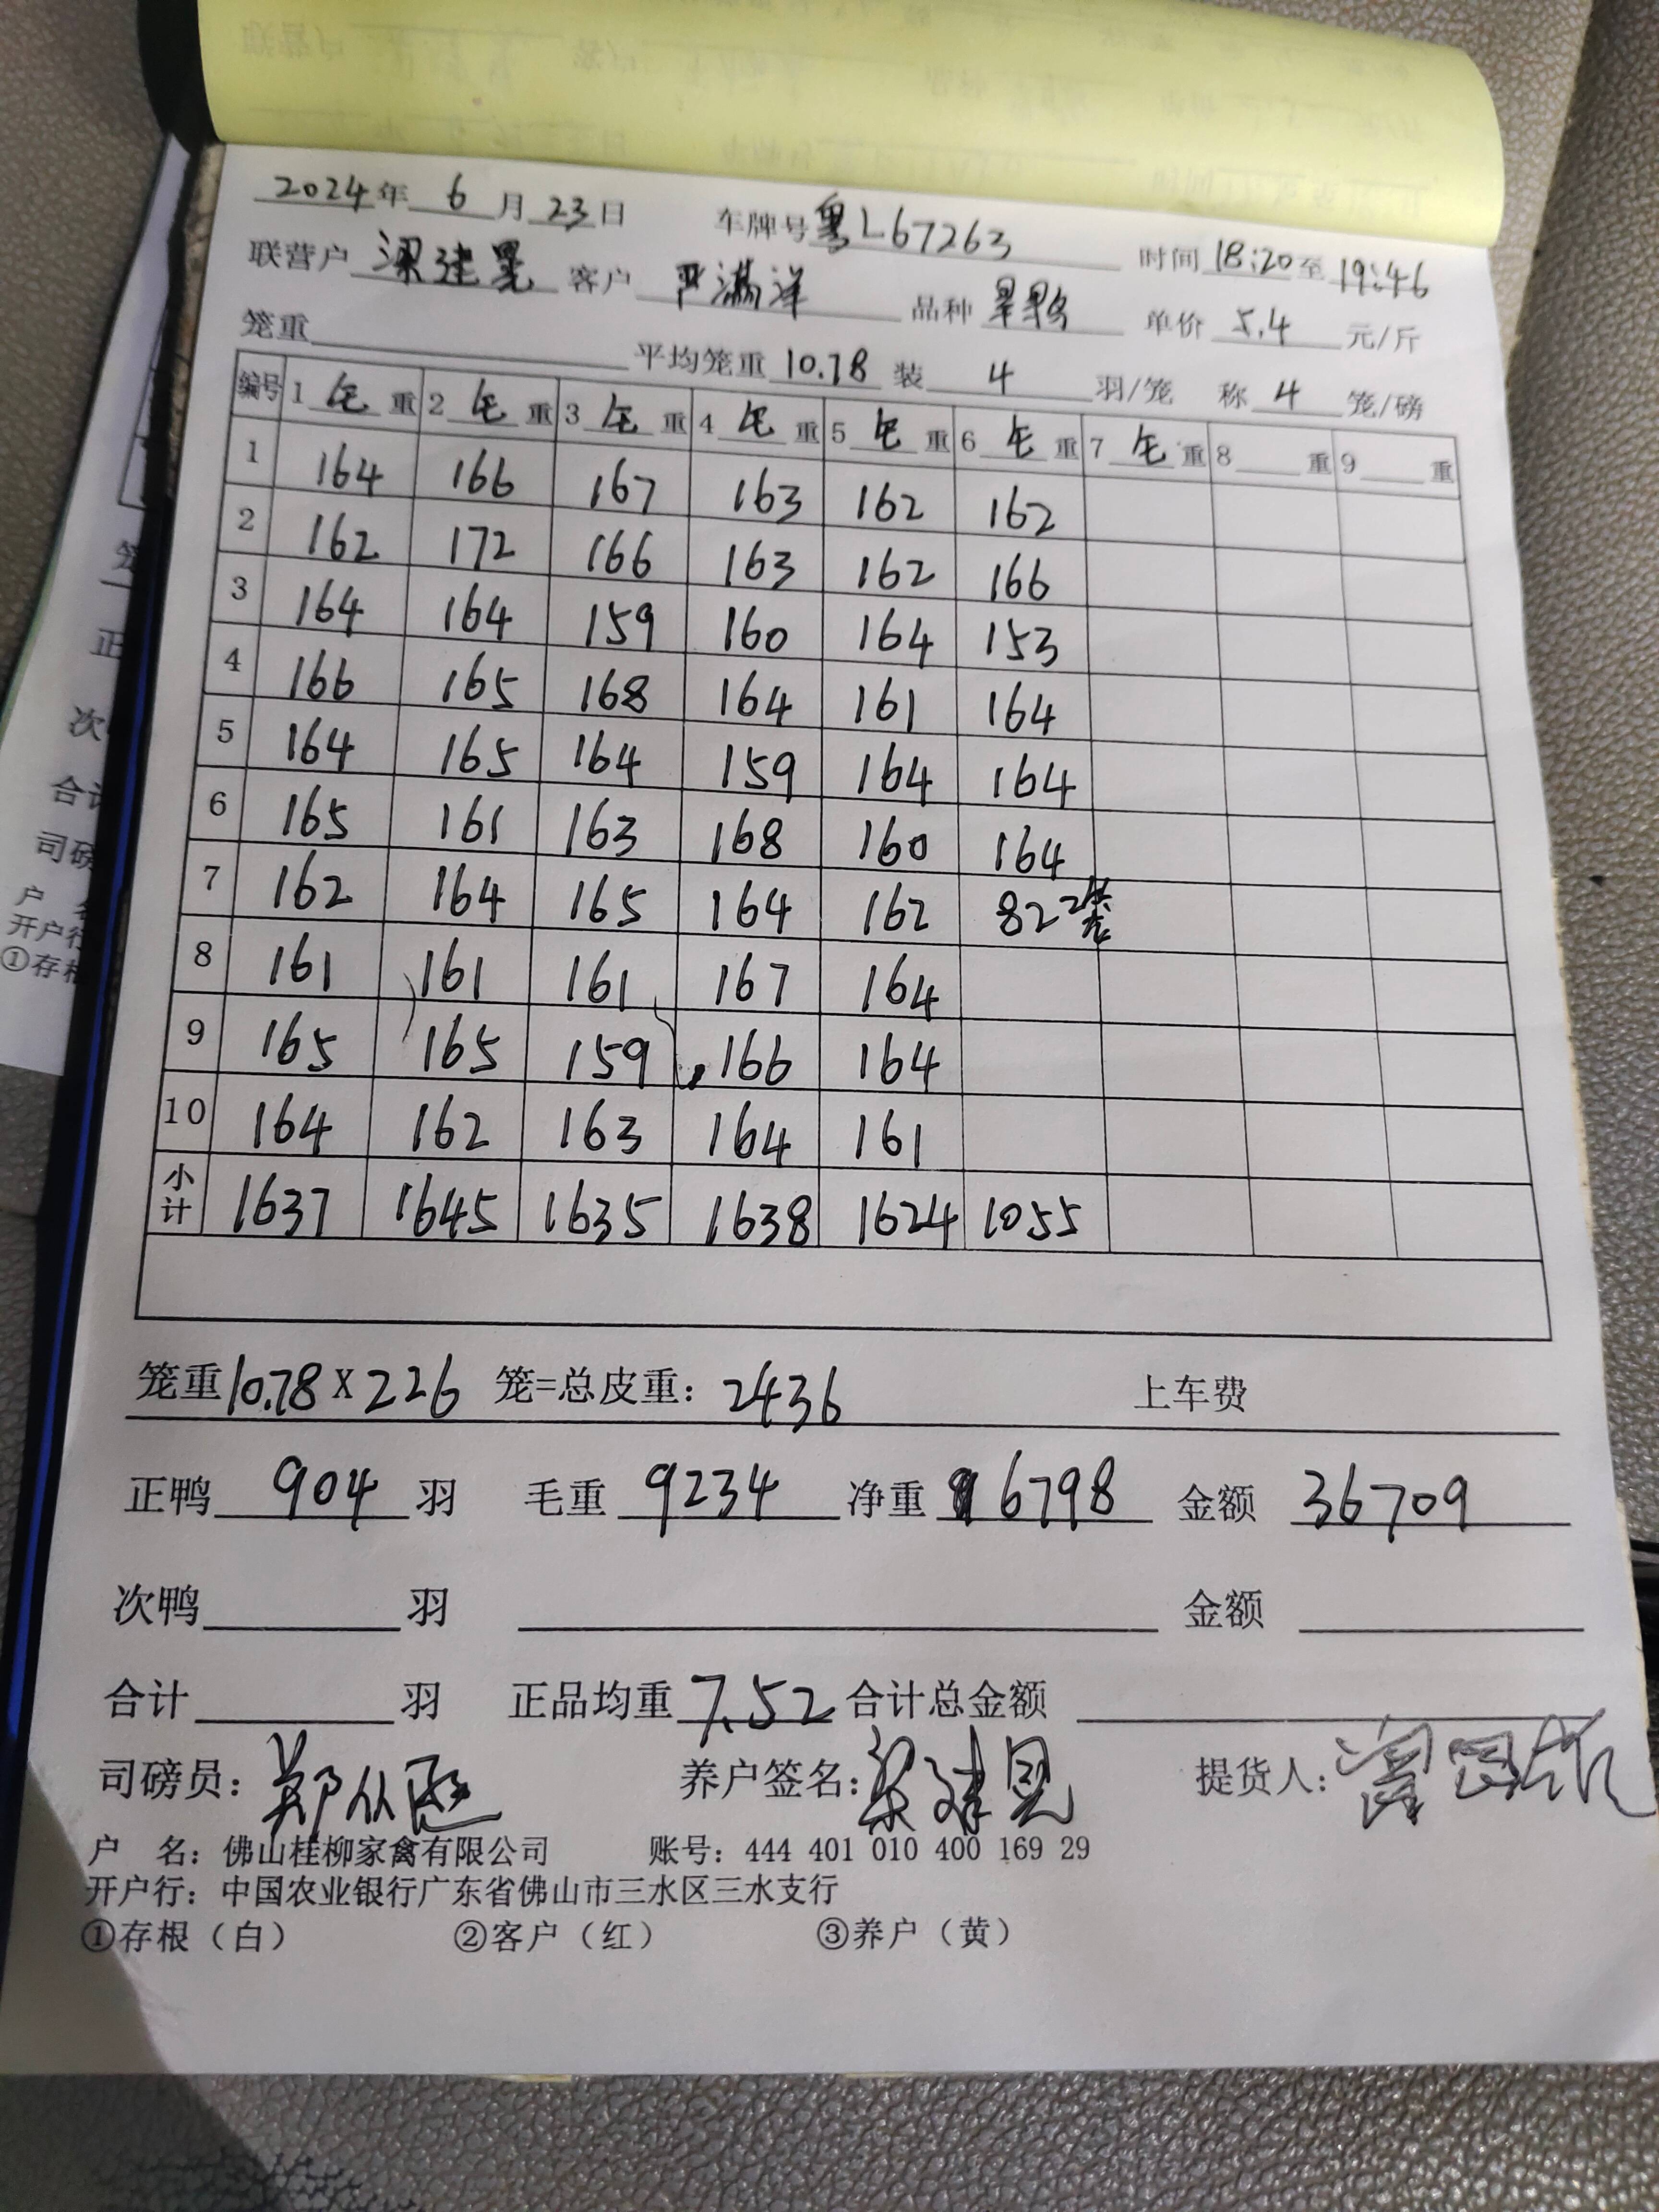 2024年 6 月 23 日 车牌号 粤L67263 时间 18:20 至 19:46
联营户 梁建 客户 严满洋 品种 单价 5.4 元/斤
笼重 平均笼重 10.78 装 4 羽/笼 称 4 笼/磅
编号 1 毛 重 2 毛 重 3 毛 重 4 毛 重 5 毛 重 6 毛 重 7 毛 重 8 重 9 重
1 164 166 167 163 162 162
2 162 172 166 163 162 166
3 164 164 159 160 164 153
4 166 165 168 164 161 164
5 164 165 164 159 164 164
6 165 161 163 168 160 164
7 162 164 165 164 162 82 2笼
8 161 161 161 167 164
9 165 165 159 166 164
10 164 162 163 164 161
小计 1637 1645 1635 1638 1624 1055
笼重10.78 X 226 笼=总皮重: 2436 上车费
正鸭 904 羽 毛重 9234 净重 6798 金额 36709
次鸭 羽 金额
合计 羽 正品均重 7.52 合计总金额
司磅员: 郑 养户签名: 梁建 提货人:
户 名: 佛山桂柳家禽有限公司 账号: 444 401 010 400 169 29
开户行: 中国农业银行广东省佛山市三水区三水支行
①存根（白） ②客户（红） ③养户（黄）